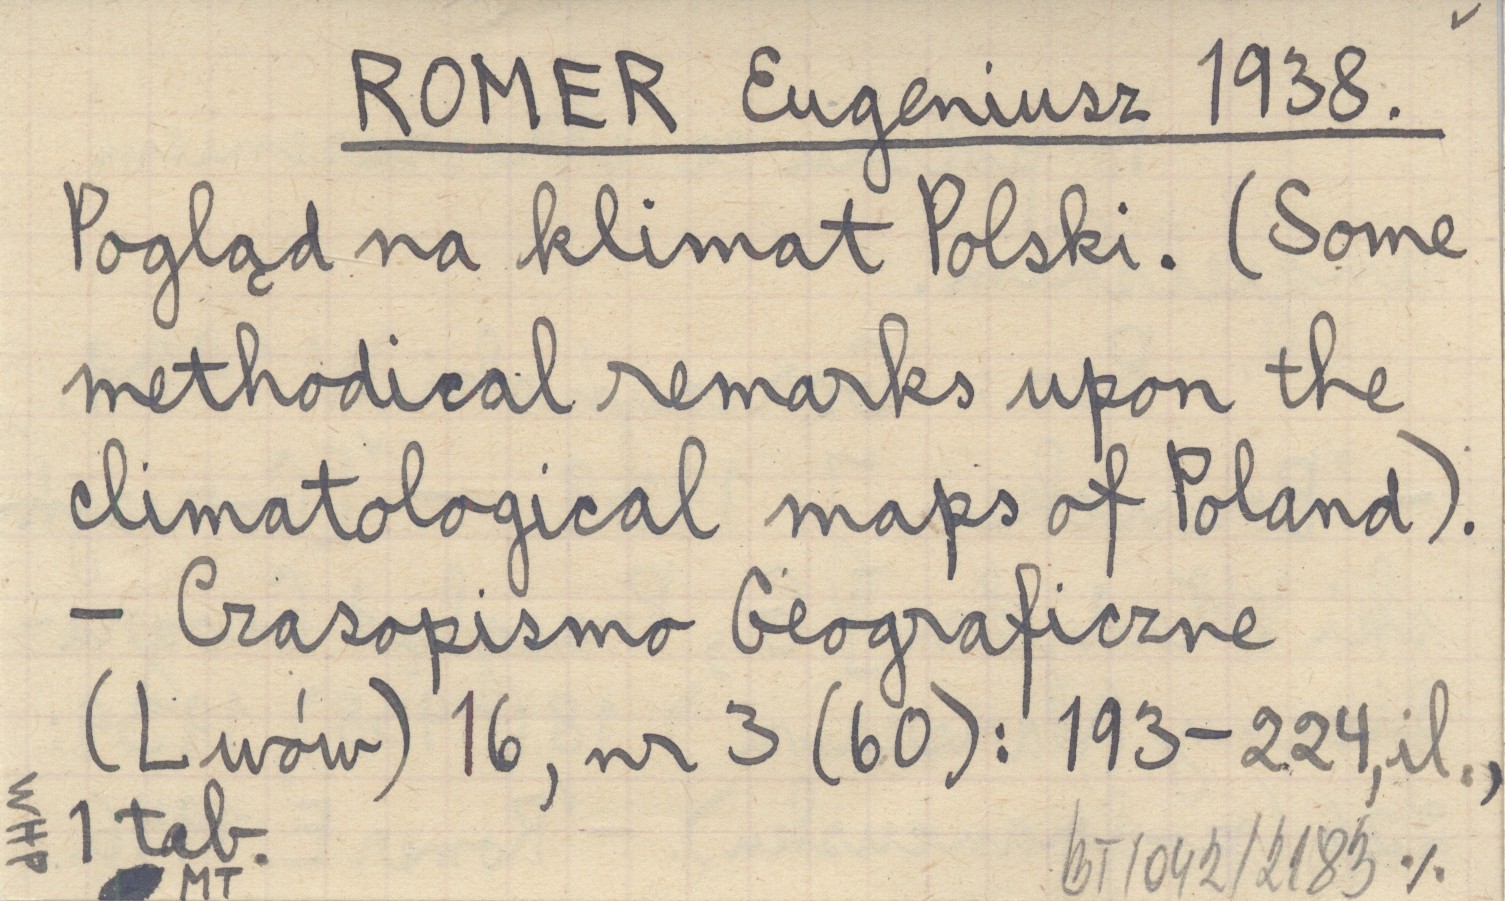 ROMER Eugeniusz 1938.
Pogląd na klimat Polski. (Some
methodical remarks upon the
climatological maps of Poland).
- Czasopismo Geograficzne
(Lwów) 16, nr 3 (60): 193-224, il.,
1 tab.
WHP
MT
BT/042/2183 ./.